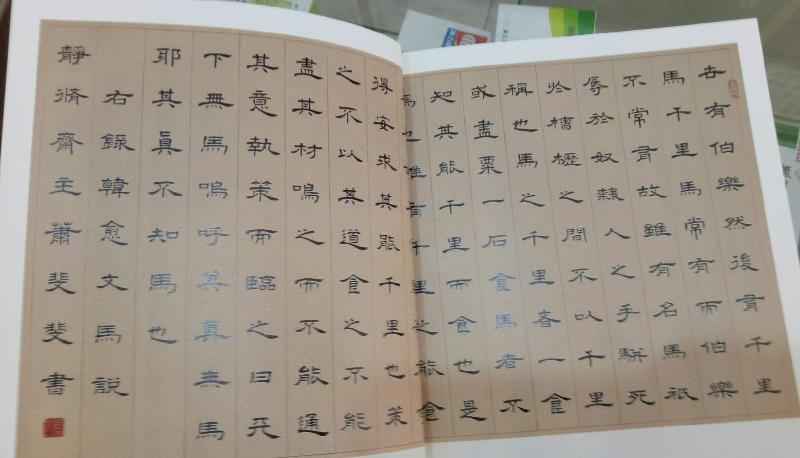 古有伯樂然後有千里
馬千里馬常有而伯樂
不常有故雖有名馬祗
辱於奴隸人之手駢死
於槽櫪之間不以千里
稱也馬之千里者一食
或盡粟一石食馬者不
知其能千里而食也是
馬也雖有千里之能食
得安求其能千里也策
之不以其道食之不能
盡其材鳴之而不能通
其意執策而臨之曰天
下無馬嗚呼其眞無馬
耶其眞不知馬也
右錄韓愈文馬說
靜脩齋主蕭斐斐書